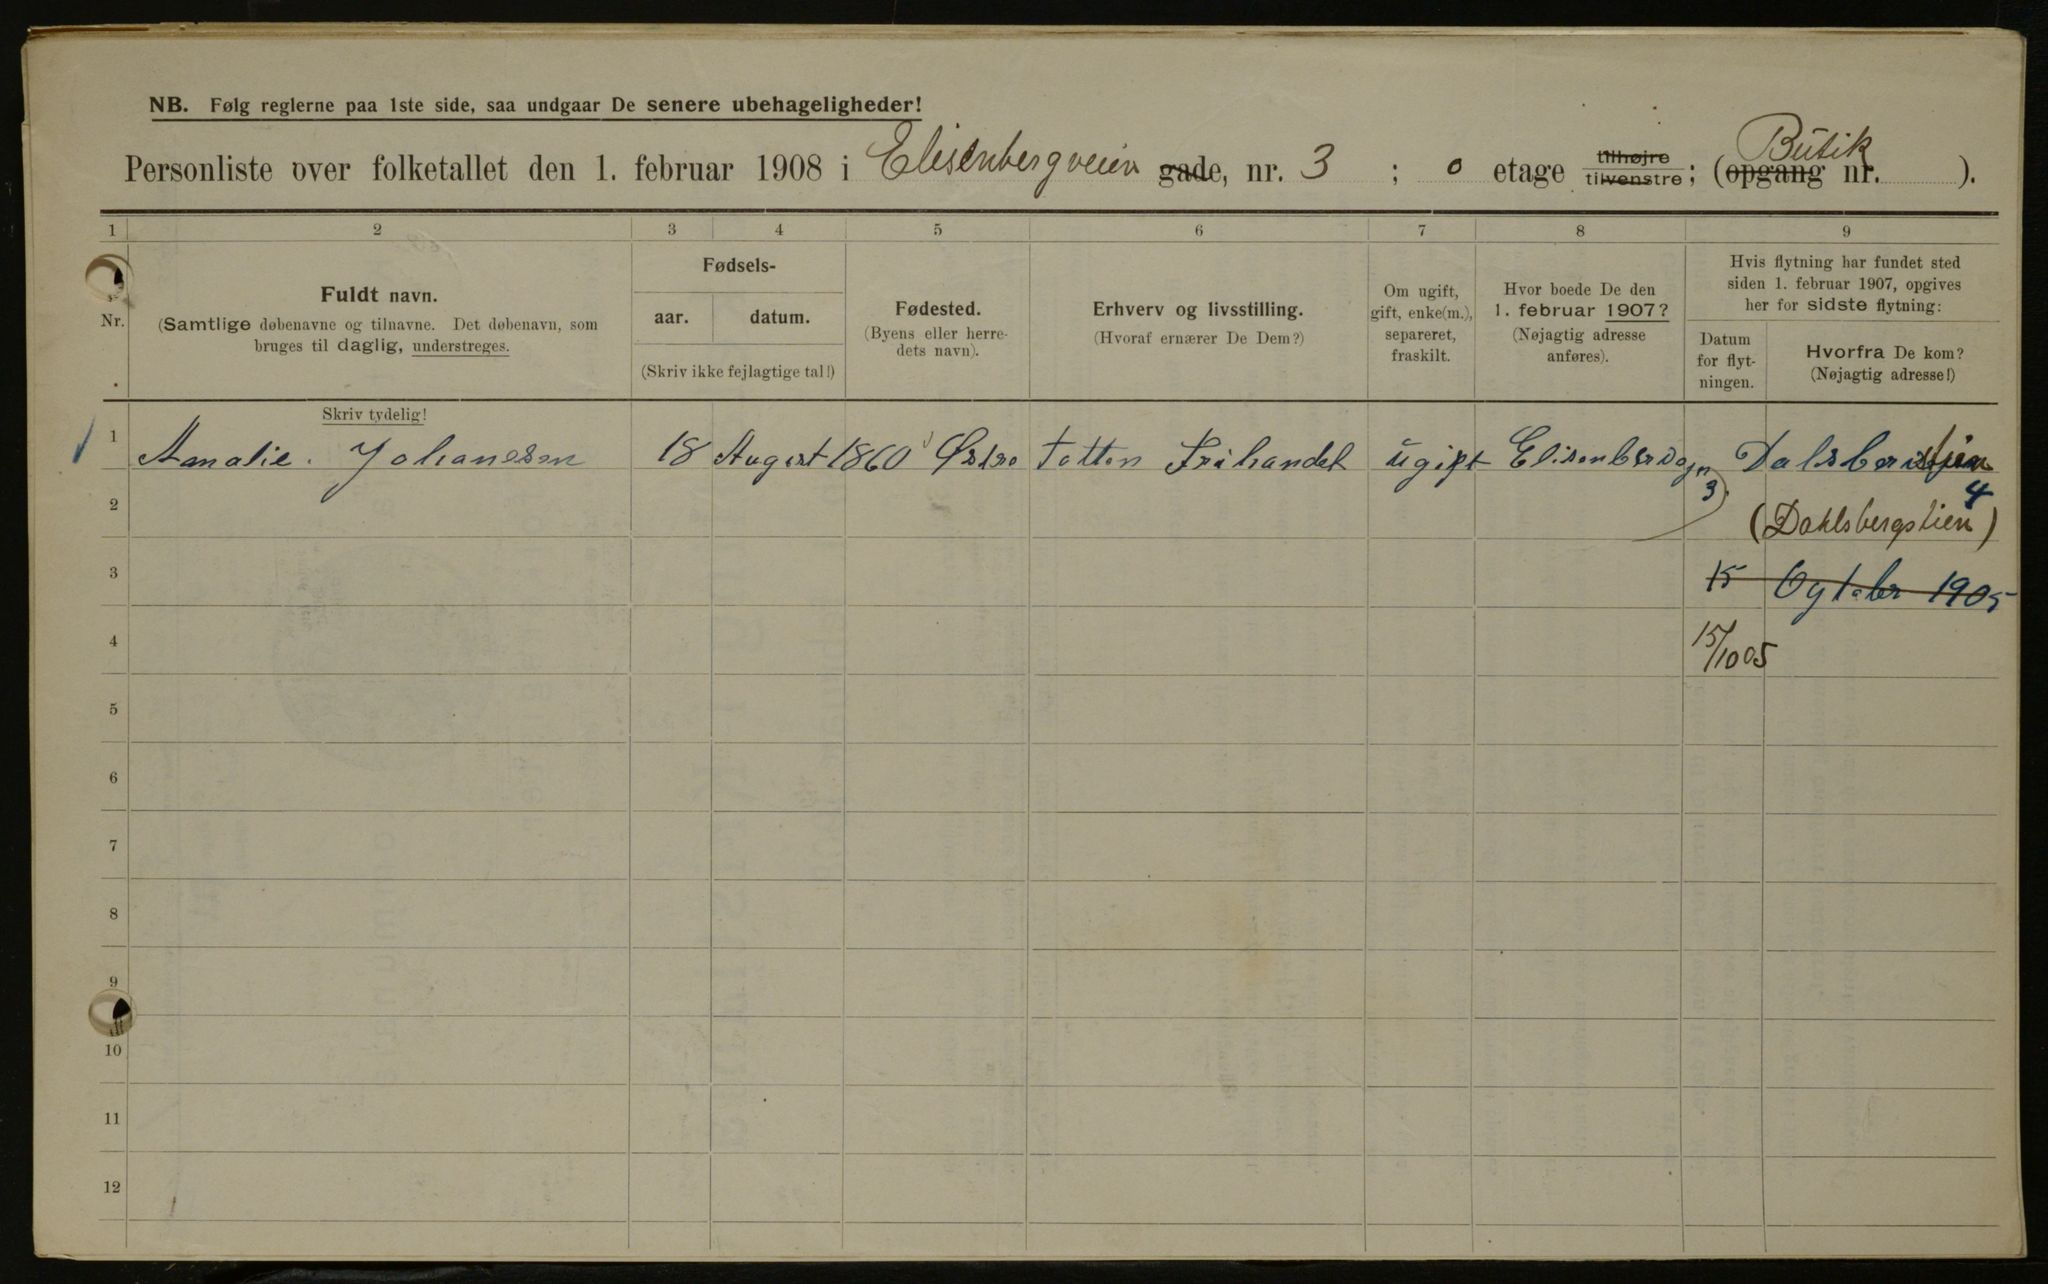 NB. Følg reglerne paa 1ste side, saa undgaar De senere ubehageligheder!
Personliste over folketallet den 1. februar 1908 i Elisenbergveien gade, nr. 3 ; 0 etage tilhøjre tilvenstre; (opgang Butik nr. ).
1 2 3 4 5 6 7 8 9
Nr.
Fuldt navn.
(Samtlige døbenavne og tilnavne. Det døbenavn, som
bruges til daglig, understreges.
Skriv tydelig!
Fødsels-
aar. datum.
(Skriv ikke fejlagtige tal!)
Fødested.
(Byens eller herre-
dets navn).
Erhverv og livsstilling.
(Hvoraf ernærer De Dem?)
Om ugift,
gift, enke(m.),
separeret,
fraskilt.
Hvor boede De den
1. februar 1907?
(Nøjagtig adresse
anføres).
Hvis flytning har fundet sted
siden 1. februar 1907, opgives
her for sidste flytning:
Datum
for flyt-
ningen.
Hvorfra De kom?
(Nøjagtig adresse!)
1 Amalie. Johanesen 18 August 1860 Østre totten Fruhandel ugift Elisenbervejn 3 Dalsbergstien 4
2 (Dahlsbergstien)
3 15 Ogtober 1905
4 15/10 05
5
6
7
8
9
10
11
12